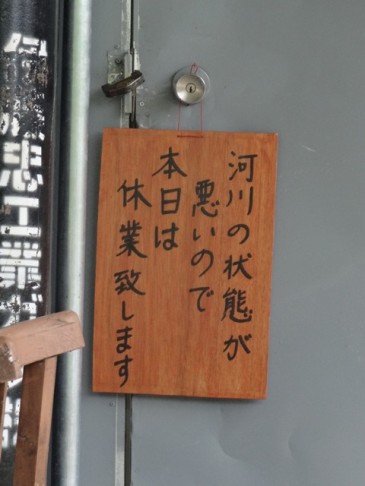 河川の状態が
悪いので
本日は
休業致します